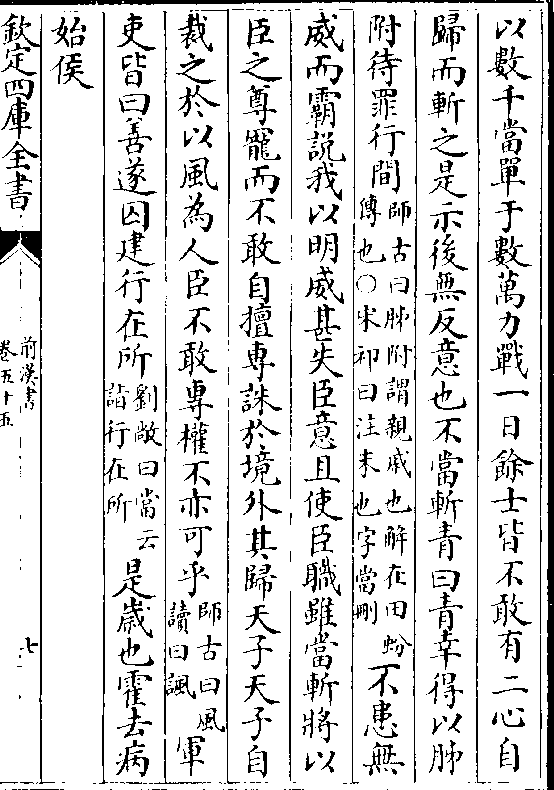 以數千當單于數萬力戰一日餘士皆不敢有二心自
歸而斬之是示後無反意也不當斬青曰青幸得以肺
附待罪行間師古曰肺附謂親戚也解在田蚡
傳也○宋祁曰注末也字當刪不患無
威而霸說我以明威甚失臣意且使臣職雖當斬將以
臣之尊寵而不敢自擅專誅於境外其歸天子天子自
裁之於以風為人臣不敢專權不亦可乎師古曰風
讀曰諷軍
吏皆曰善遂囚建行在所劉敞曰當云
詣行在所是歲也霍去病
始侯
欽定四庫全書
前漢書
卷五十五
七